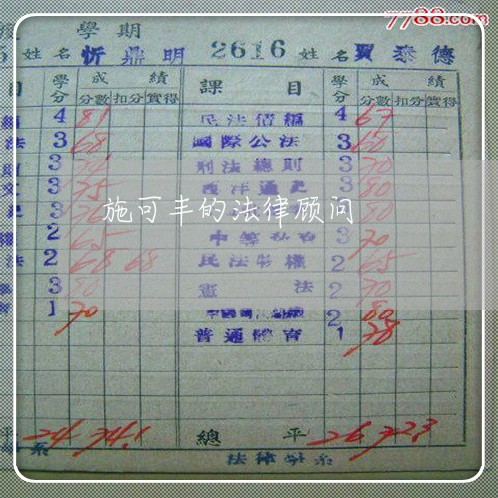 7788.com
學期
姓名 忻鼎明 2616 姓名 賈泰德
目 學分 成績 課目 學分 成績
分數 扣分 實得 分數 扣分 實得
4 81 民法債編 4 67
法 3 68 國際公法 3 60
3 刑法總則 3 70
3 75 西洋通史 3 80
3 3 80
2 65 3 70
法 2 68 68 民法物權 2 65
3 80 憲法 2 70
1 70 2 80
普通體育 1 78
施可丰的法律顾问
平 24 74.1 總平 26 72.3
系 法律學系